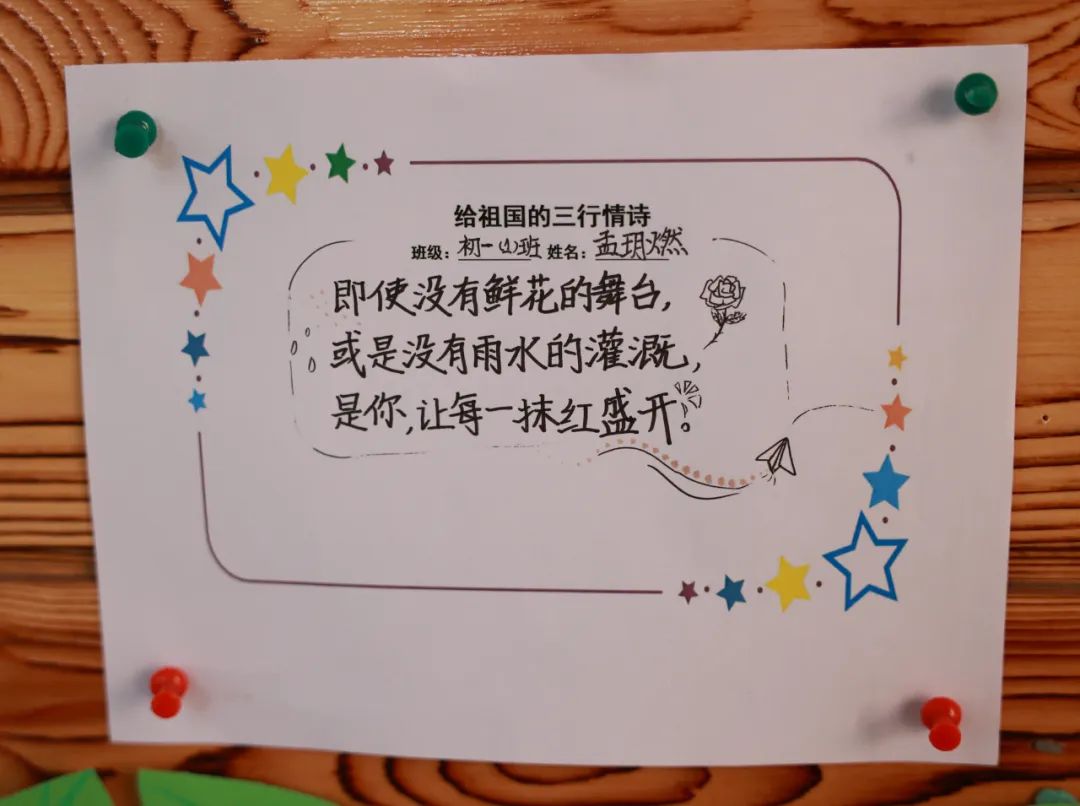 给祖国的三行情诗
班级：初一(1)班 姓名：孟玥燃
即使没有鲜花的舞台，
或是没有雨水的灌溉，
是你，让每一抹红盛开。